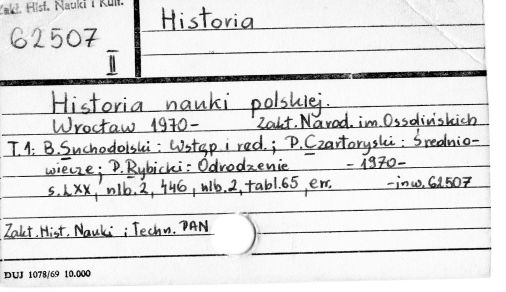 Zakł. Hist. Nauki i Kult.
62507
II
Historia
Historia nauki polskiej.
Wrocław 1970- Zakł. Narod. im. Ossolińskich
T.1: B. Suchodolski: Wstęp i red.; P. Czartoryski: Średnio-
wiecze; P. Rybicki: Odrodzenie -1970-
s. LXX, nlb. 2, 446, nlb. 2, tabl. 65, err. -inw. 62507
Zakł. Hist. Nauki i Techn. PAN
DUJ 1078/69 10.000